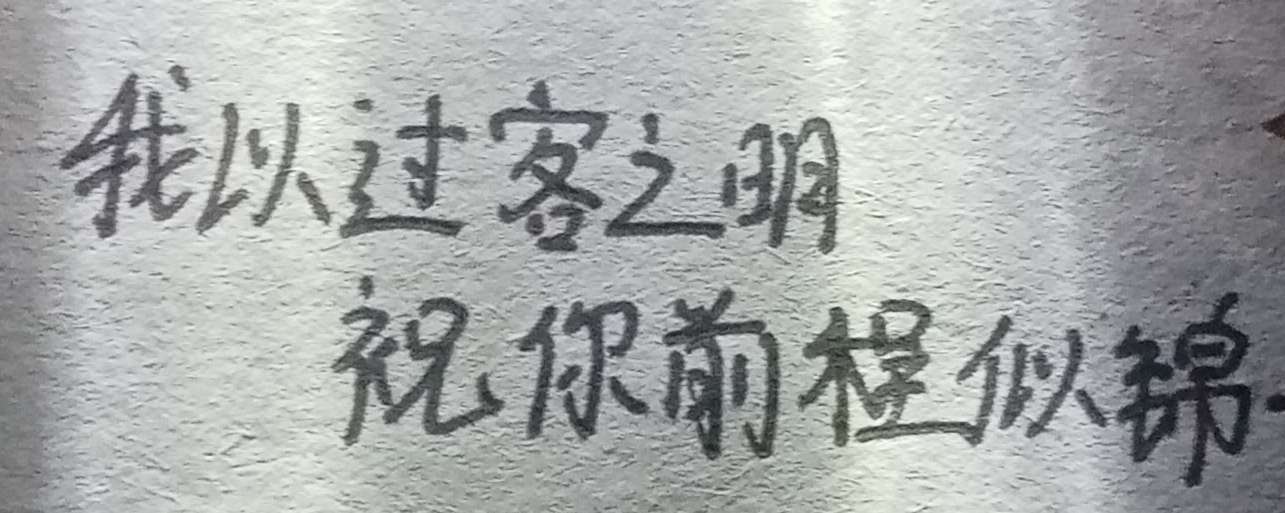 我以过客之明
祝你前程似锦